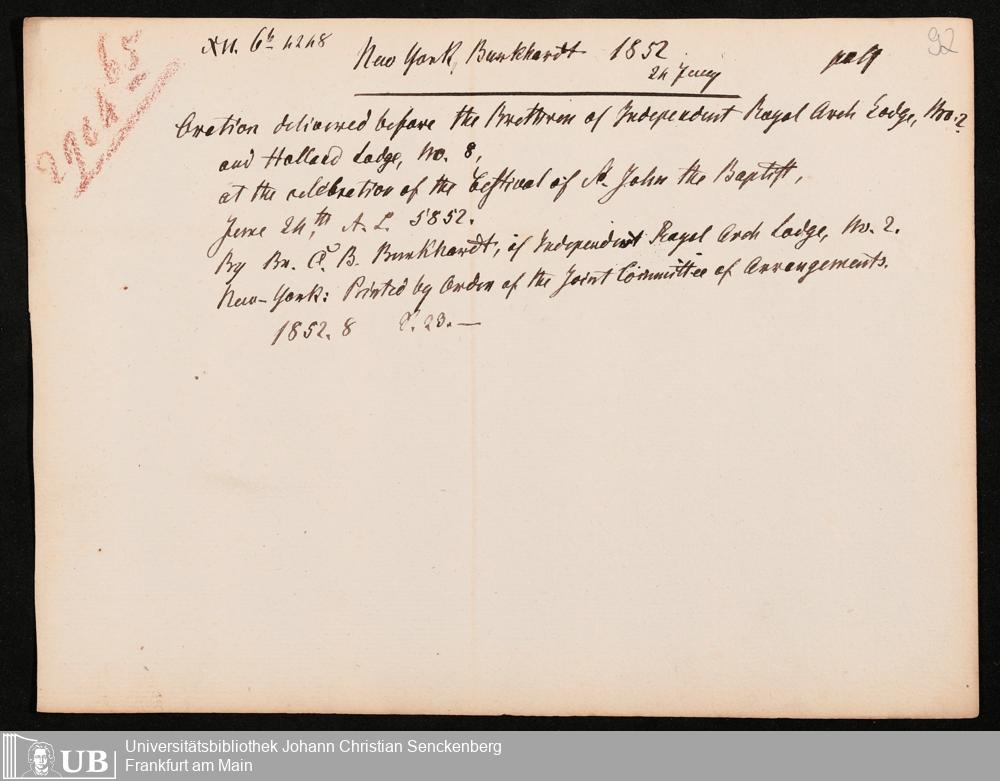 XII. 6b 4248
New York, Burkhardt 1852
24 Juny
92
Oration delivered before the Brethren of Independent Royal Arch Lodge, No. 2
and Holland Lodge, No. 8,
at the celebration of the Festival of St. John the Baptist,
June 24th, A. L. 5852.
By Br. C. B. Burkhardt, of Independent Royal Arch Lodge, No. 2.
New-York: Printed by Order of the Joint Committee of Arrangements.
1852. 8 S. 23. —
UB
Universitätsbibliothek Johann Christian Senckenberg
Frankfurt am Main